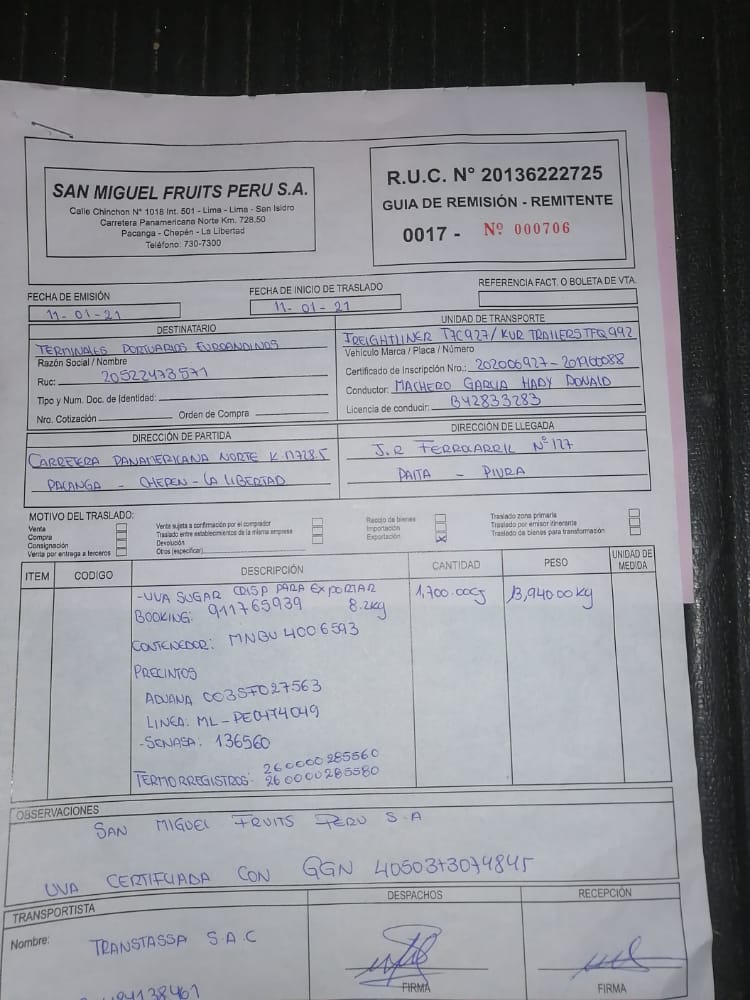 SAN MIGUEL FRUITS PERU S.A.
Calle Chinchon N° 1018 Int. 501 - Lima - Lima - San Isidro
Carretera Panamericana Norte Km. 728.50
Pacanga - Chepén - La Libertad
Teléfono: 730-7300
R.U.C. N° 20136222725
GUIA DE REMISIÓN - REMITENTE
0017 - Nº 000706
FECHA DE EMISIÓN
11-01-21
FECHA DE INICIO DE TRASLADO
11-01-21
REFERENCIA FACT. O BOLETA DE VTA.
DESTINATARIO
TERMINALES PORTUARIOS EUROANDINOS
Razón Social / Nombre
Ruc: 20522473571
Tipo y Num. Doc. de Identidad:
Nro. Cotización Orden de Compra
UNIDAD DE TRANSPORTE
FREIGHTLINER T7C927 / KUR TRAILERS TFQ992
Vehículo Marca / Placa / Número
Certificado de Inscripción Nro.: 202006927 -
Conductor: MACHERO GARCIA HADY DONALD
Licencia de conducir: B42833283
DIRECCIÓN DE PARTIDA
CARRETERA PANAMERICANA NORTE K.M728.5
PACANGA - CHEPEN - LA LIBERTAD
DIRECCIÓN DE LLEGADA
J.R FERROARRIL N° 127
PAITA - PIURA
MOTIVO DEL TRASLADO:
Venta
Compra
Consignación
Venta por entrega a terceros
Venta sujeta a confirmación por el comprador
Traslado entre establecimientos de la misma empresa
Devolución
Otros (especificar)
Recojo de bienes
Importación
Exportación X
Traslado zona primaria
Traslado por emisor itinerante
Traslado de bienes para transformación
ITEM CODIGO DESCRIPCIÓN CANTIDAD PESO UNIDAD DE MEDIDA
-UVA SUGAR CRISP PARA EXPORTAR 1,700.00CJ 13,940.00 Kg
BOOKING: 911765939 8.2Kg
CONTENEDOR: MNBU 4006593
PRECINTOS
ADUANA 0035FD27563
LINEA: ML-PE0474049
-SENASA: 136560
TERMORREGISTROS: 260000285560
260000285580
OBSERVACIONES
SAN MIGUEL FRUITS PERU S.A
UVA CERTIFICADA CON GGN 4050373074845
TRANSPORTISTA
Nombre: TRANSTASSA S.A.C
DESPACHOS
FIRMA
RECEPCIÓN
FIRMA